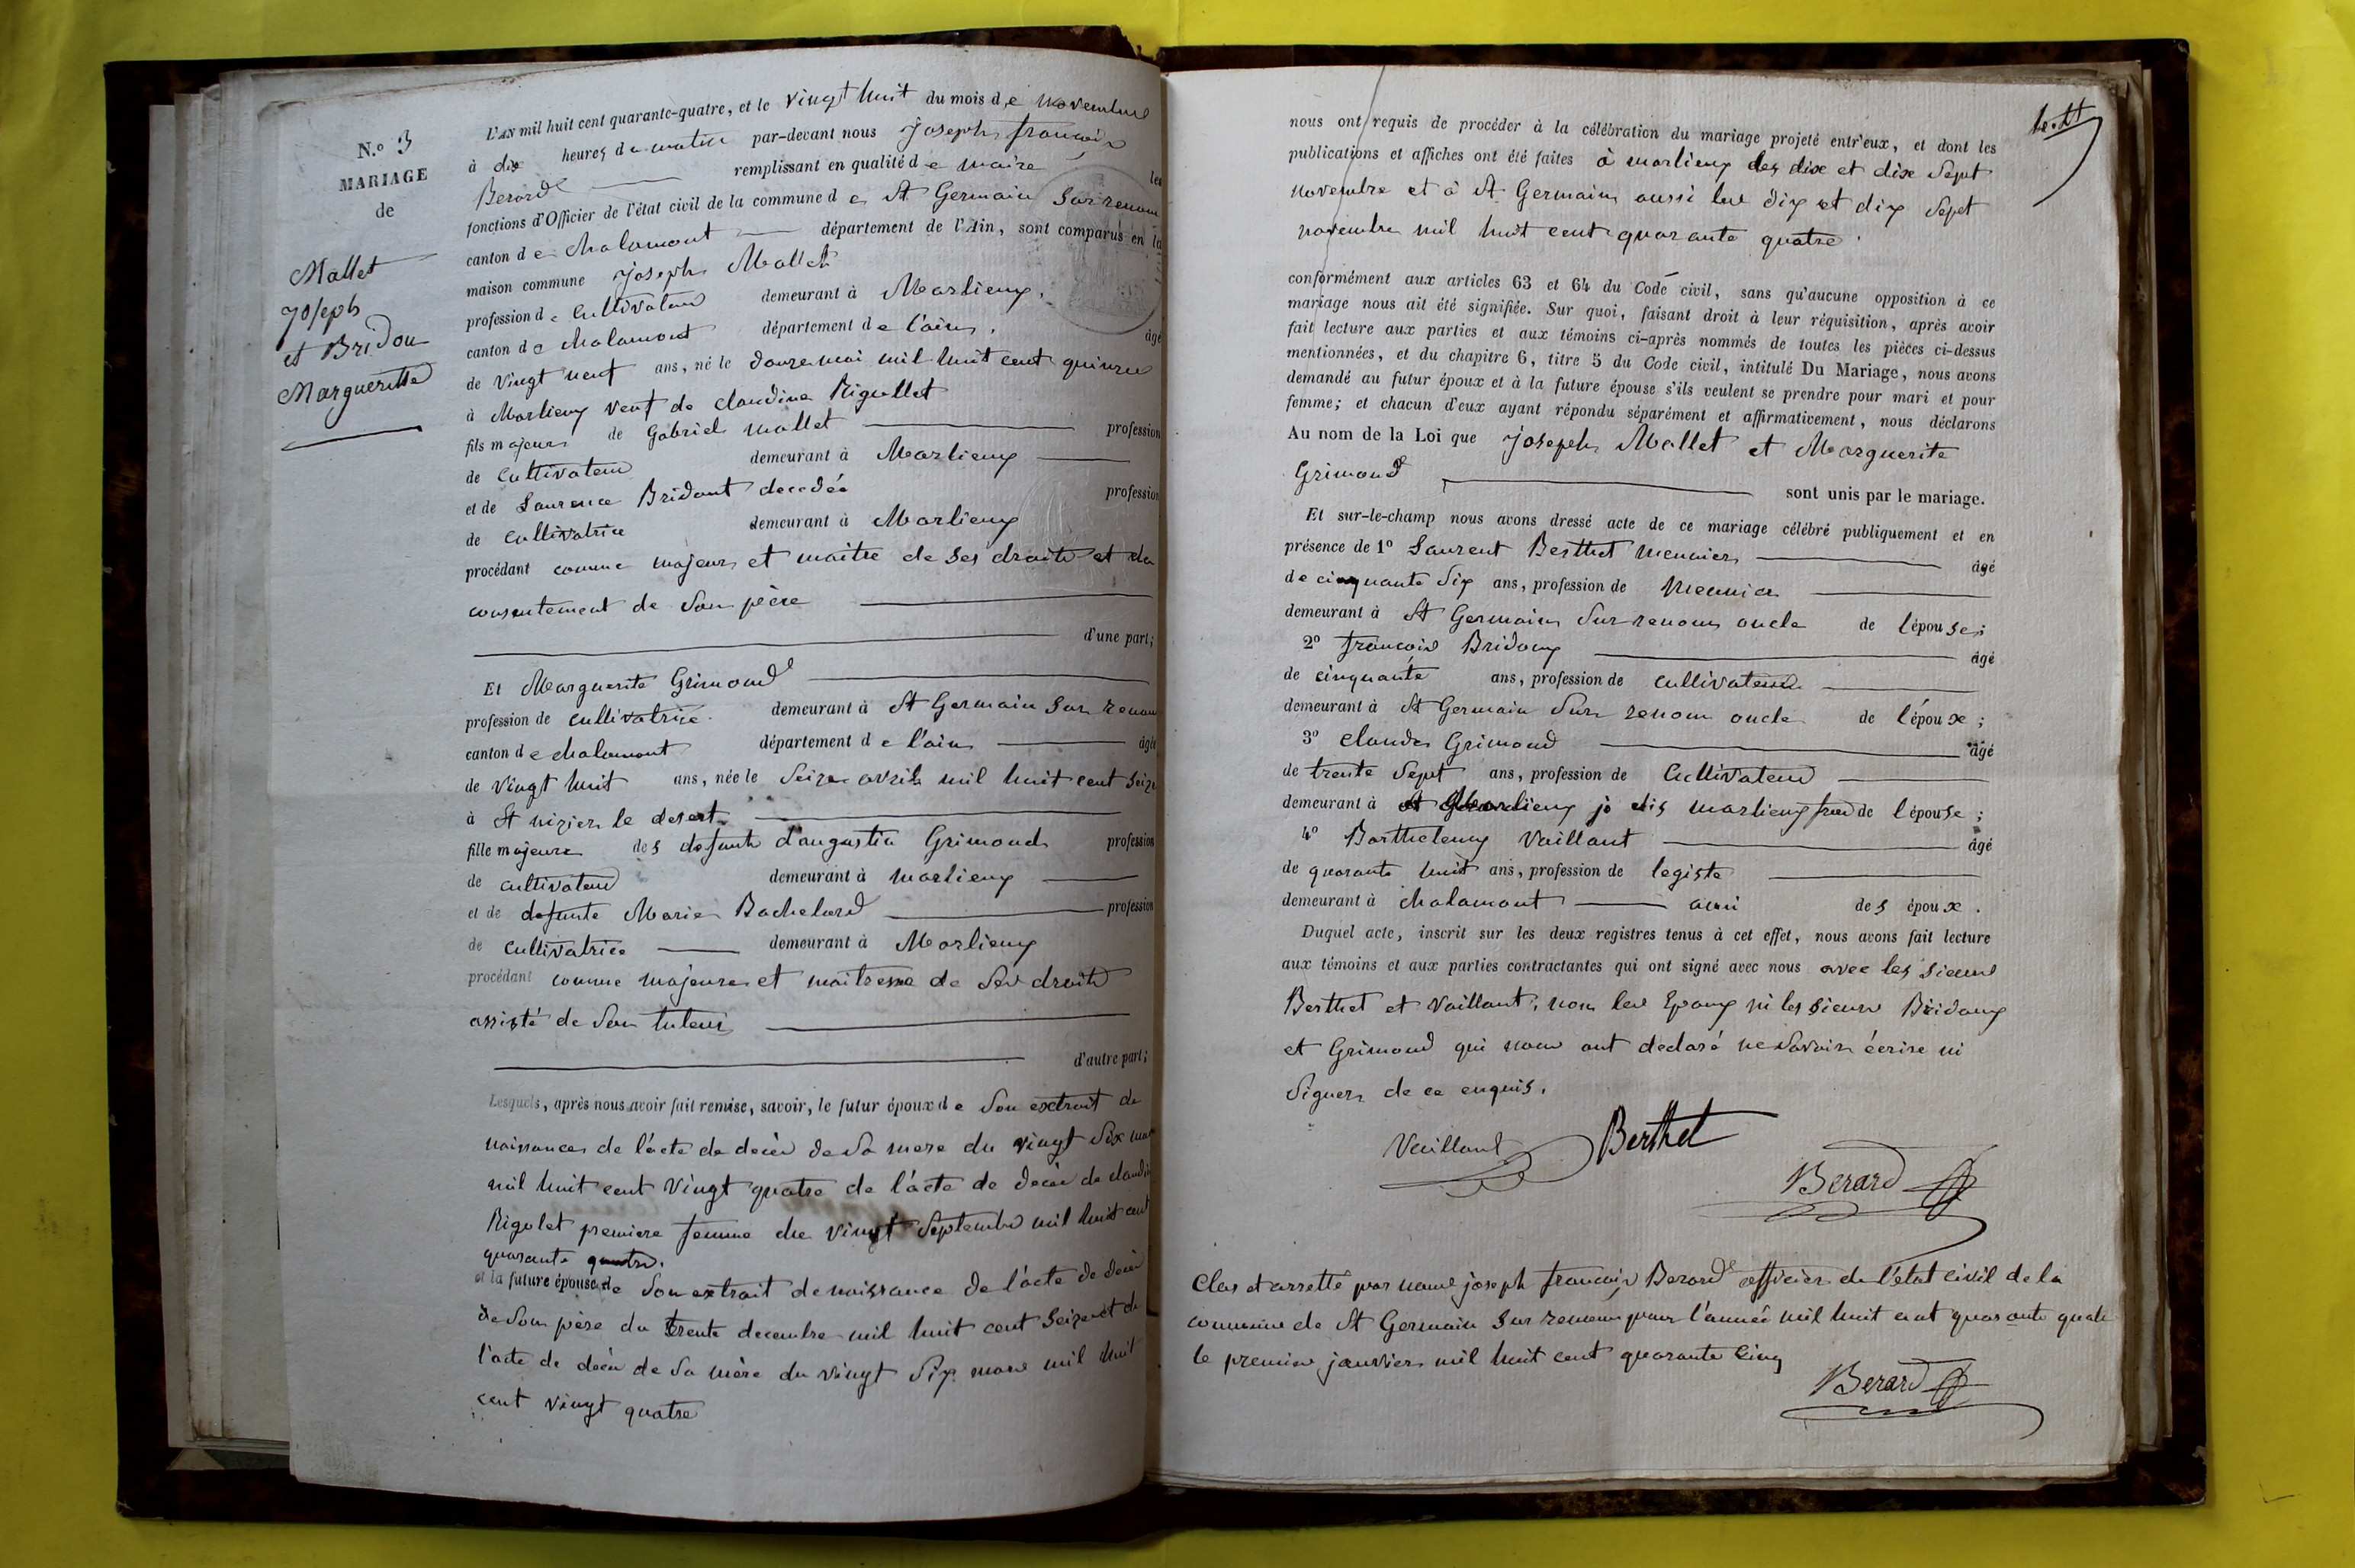 N.o 3
MARIAGE
de
Mallet
Joseph
et Bridon
Margueritte
L'AN mil huit cent quarante-quatre, et le vingt huit du mois de novembre
à dix heures du matin par-devant nous Joseph francois
Berard remplissant en qualité de maire les
fonctions d'Officier de l'état civil de la commune de St Germain sur renom
canton de chalamont département de l'Ain, sont comparus en la
maison commune Joseph Mallet
profession de cultivateur demeurant à Marlieux,
canton de chalamont département de l'ain, âgé
de vingt neuf ans, né le douze mai mil huit cent quinze
à Marlieux veuf de claudine Rigollet
fils majeur de Gabriel mallet profession
de cultivateur demeurant à Marlieux
et de Laurence Bridont decedée profession
de cultivatrice demeurant à Marlieux
procédant comme majeur et maitre de ses droits et du
consentement de son père
d'une part;
Et Marguerite Grimond
profession de cultivatrice demeurant à St Germain sur renom
canton de chalamont département de l'ain âgée
de vingt huit ans, née le seize avril mil huit cent seize
à St nizier le desert
fille majeure des defunts d'augustin Grimond profession
de cultivateur demeurant à marlieux
et de defunte Marie Bachelard profession
de cultivatrice demeurant à Marlieux
procédant comme majeure et maitresse de ses droits
assisté de son tuteur
d'autre part;
Lesquels, après nous avoir fait remise, savoir, le futur époux de son extrait de
naissances de l'acte de décès de sa mere du vingt six mars
mil huit cent vingt quatre de l'acte de décès de claudine
Rigolet premiere femme du vingt septembre mil huit cent
quarante quatre.
et la future épouse de son extrait de naissance de l'acte de décès
de son père du trente decembre mil huit cent seize et de
l'acte de décès de sa mère du vingt six mars mil huit
cent vingt quatre
nous ont requis de procéder à la célébration du mariage projeté entr'eux, et dont les
publications et affiches ont été faites à marlieux les dix et dix sept
novembre et à St Germain aussi les dix et dix sept
novembre mil huit cent quarante quatre.
conformément aux articles 63 et 64 du Code civil, sans qu'aucune opposition à ce
mariage nous ait été signifiée. Sur quoi, faisant droit à leur réquisition, après avoir
fait lecture aux parties et aux témoins ci-après nommés de toutes les pièces ci-dessus
mentionnées, et du chapitre 6, titre 5 du Code civil, intitulé Du Mariage, nous avons
demandé au futur époux et à la future épouse s'ils veulent se prendre pour mari et pour
femme; et chacun d'eux ayant répondu séparément et affirmativement, nous déclarons
Au nom de la Loi que Joseph Mallet et Marguerite
Grimond sont unis par le mariage.
Et sur-le-champ nous avons dressé acte de ce mariage célébré publiquement et en
présence de 1o Laurent Berthet meunier âgé
de cinquante six ans, profession de meunier
demeurant à St Germain sur renom oncle de l'épouse;
2o francois Bridoux âgé
de cinquante ans, profession de cultivateur
demeurant à St Germain sur renom oncle de l'époux;
3o claude Grimond âgé
de trente sept ans, profession de cultivateur
demeurant à St Marlieux je dis marlieux frere de l'épouse;
4o Barthelemy Vaillant âgé
de quarante huit ans, profession de legiste
demeurant à chalamont ami des époux.
Duquel acte, inscrit sur les deux registres tenus à cet effet, nous avons fait lecture
aux témoins et aux parties contractantes qui ont signé avec nous avec les sieurs
Berthet et Vaillant, non les Epoux ni les sieurs Bridoux
et Grimond qui nous ont declaré ne savoir écrire ni
signer de ce enquis.
Vaillant Berthet
Berard
Clos et arretté par nous joseph francois Berard officier de l'état civil de la
commune de St Germain sur renom pour l'année mil huit cent quarante quatre
le premier janvier mil huit cent quarante cinq
Berard